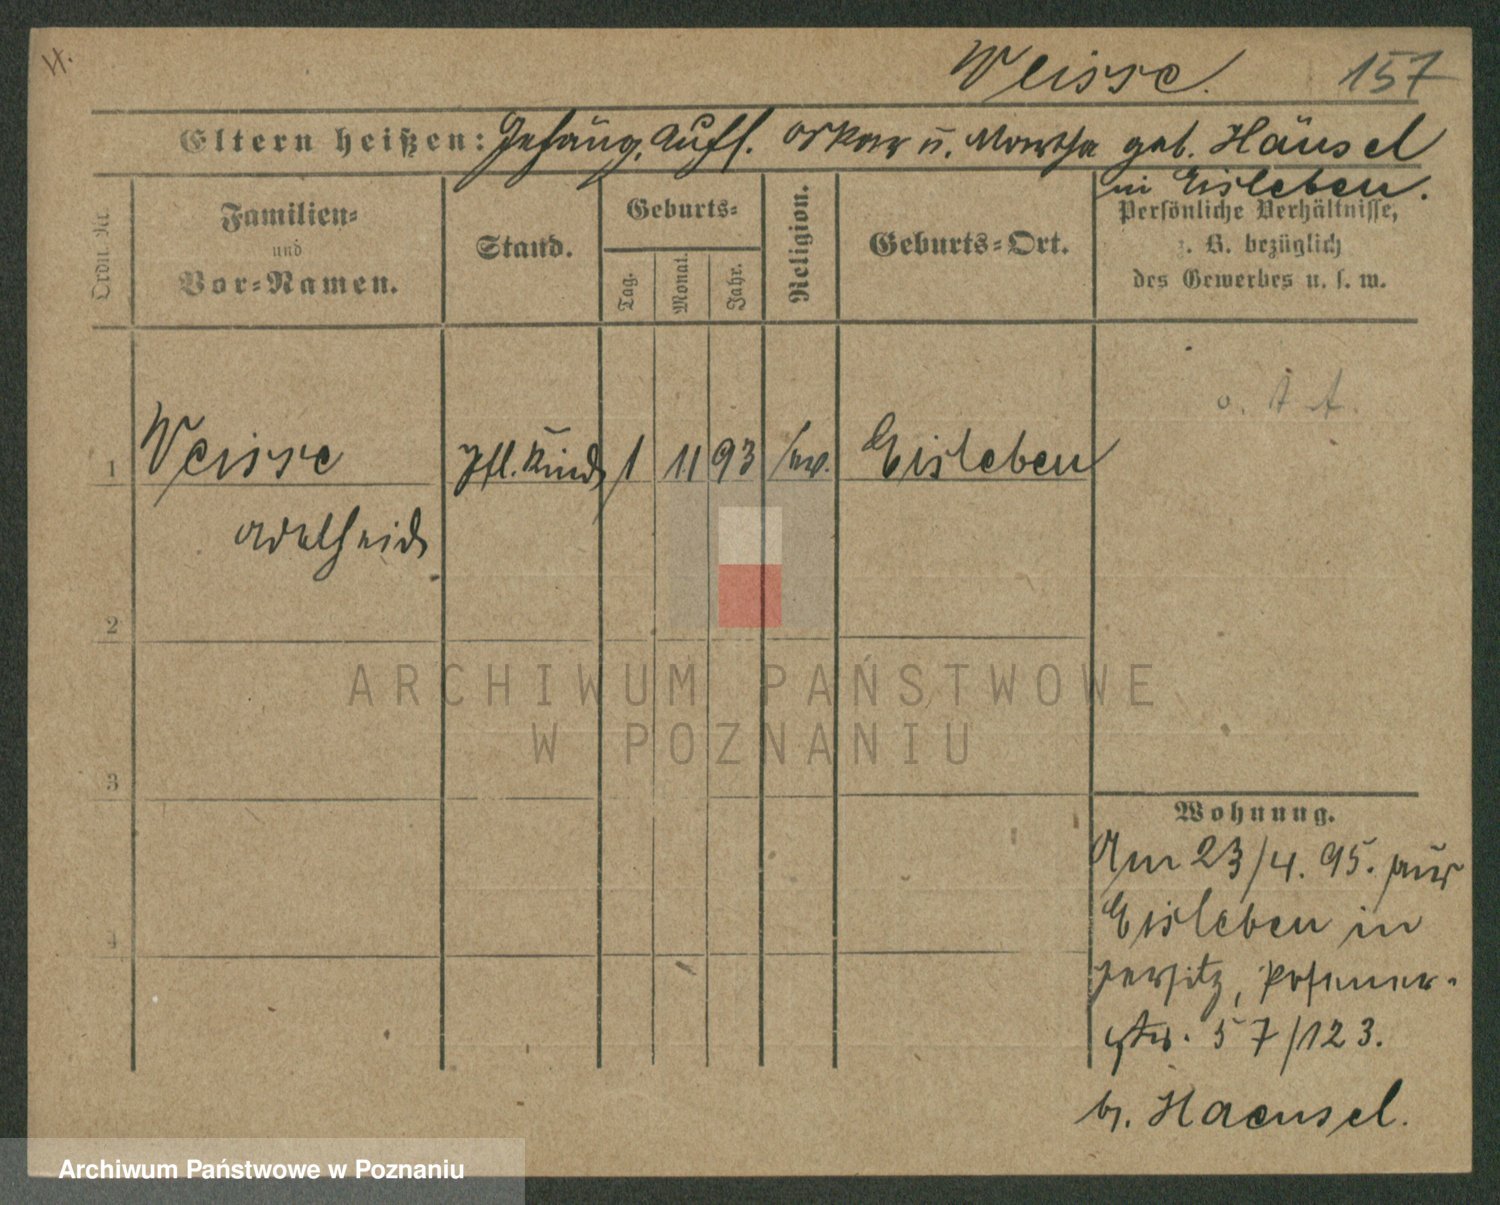 H.
Weisse. 157
Eltern heißen: Gefäng. Auff. Oskar u. Martha geb. Häusel
in Eisleben.
Ordn. Nr.
Familien-
und
Vor-Namen.
Stand.
Geburts-
Tag.
Monat.
Jahr.
Religion.
Geburts-Ort.
Persönliche Verhältnisse,
z. B. bezüglich
des Gewerbes u. s. w.
1 Weisse Pfl. Kind 1 11 93 ev. Eisleben
Adelheid
2
ARCHIWUM PAŃSTWOWE
W POZNANIU
3
Wohnung.
Am 23/4. 95. aus
4 Eisleben in
Jersitz, Posener-
str. 57/123.
b. Haensel.
Archiwum Państwowe w Poznaniu